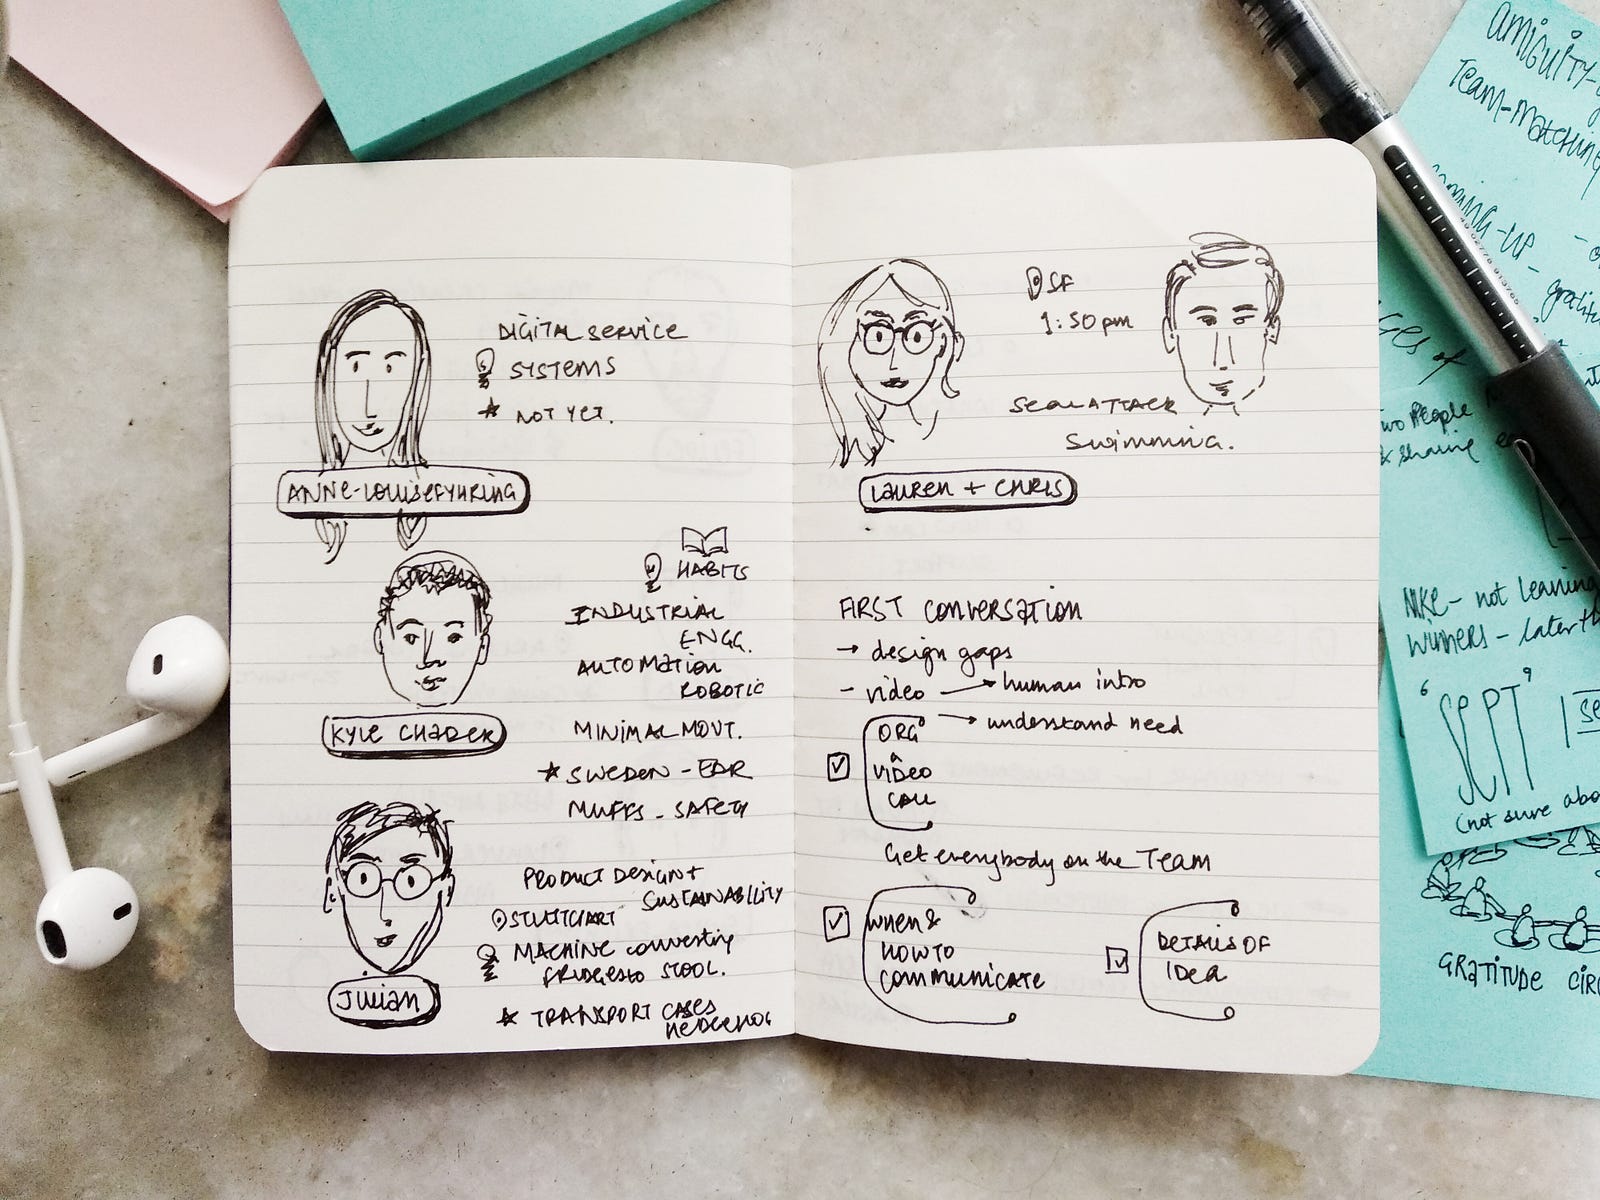 DIGITAL SERVICE
SYSTEMS
NOT YET.
ANNE-LOUISEFYHRING
HABITS
INDUSTRIAL
ENGG.
AUTOMATION
ROBOTIC
KYLE CHADER
MINIMAL MOVT.
SWEDEN - EAR
MUFFS - SAFETY
PRODUCT DESIGN +
SUSTAINABILITY
STUTTGART
MACHINE converting
FRIDGES to STOOL.
JULIAN
TRANSPORT CASES
HEDGEHOG
SF
1:50 pm
SEAL ATTACK
SWIMMING.
LAUREN + CHRIS
FIRST CONVERSATION
→ design gaps
- video → human intro
→ understand need
ORG
A
VIDEO
CALL
Get everybody on the Team
WHEN &
HOW TO
COMMUNICATE
DETAILS OF
IDEA
AMIGUITY-
TEAM-MATCHING
-UP
TWO PEOPLE
& sharing
NIKE - not leaning
WINNERS - later th
'SEPT'
(not sure abo
GRATITUDE CIRC